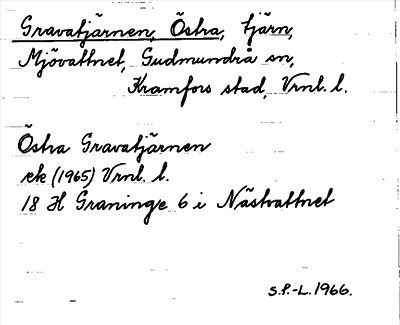 Gravatjärnen, Östra, tjärn,
Mjövattnet, Gudmundrå sn,
Kramfors stad, Vrnl. l.
Östra Gravatjärnen
ek (1965) Vrnl. l.
18 H Graninge 6 i Nästvattnet
S.P.-L. 1966.